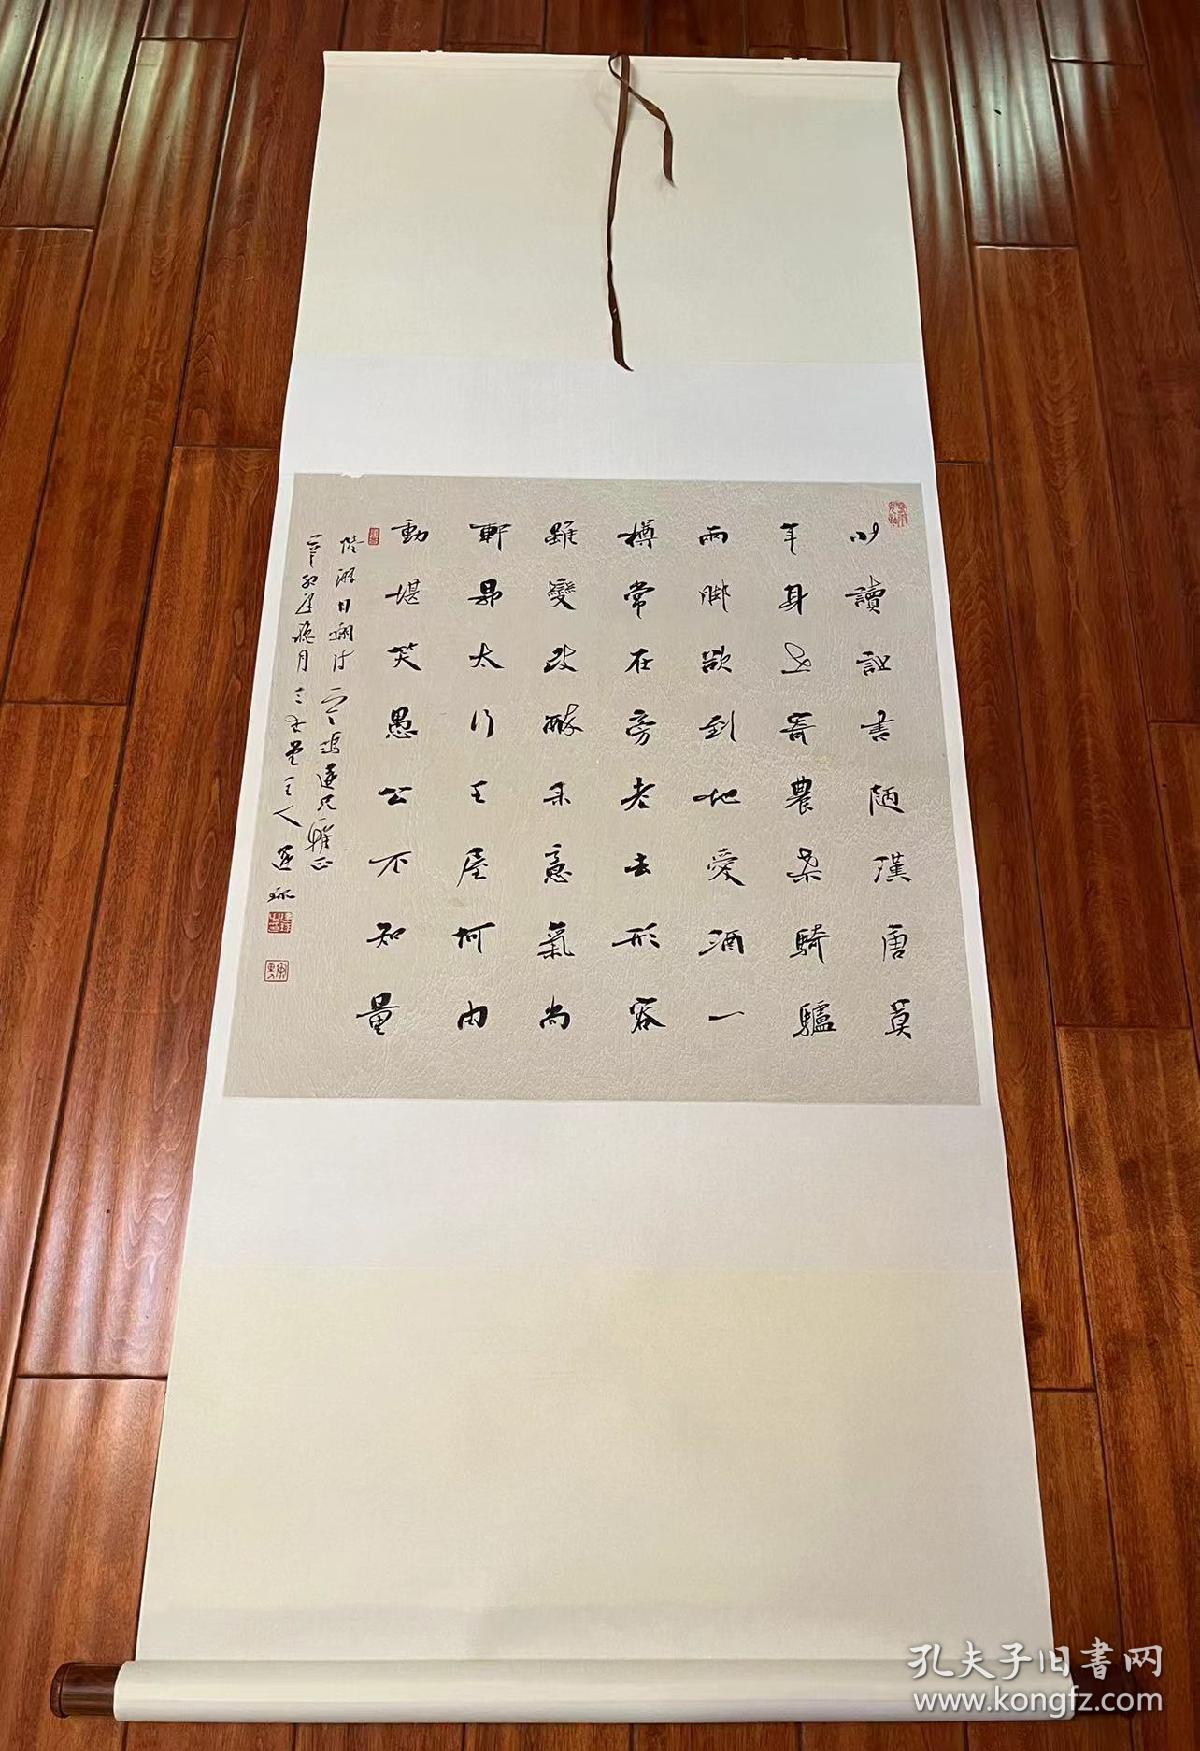 少讀詩書陋漢唐莫
年身世寄農桑騎驢
兩腳欲到地愛酒一
樽常在旁老去形容
雖變改醉來意氣尚
軒昂太行王屋何由
動堪笑愚公不知量
陸游自嘲詩一首 兄雅正
辛卯 月 主人
孔夫子旧書网
www.kongfz.com